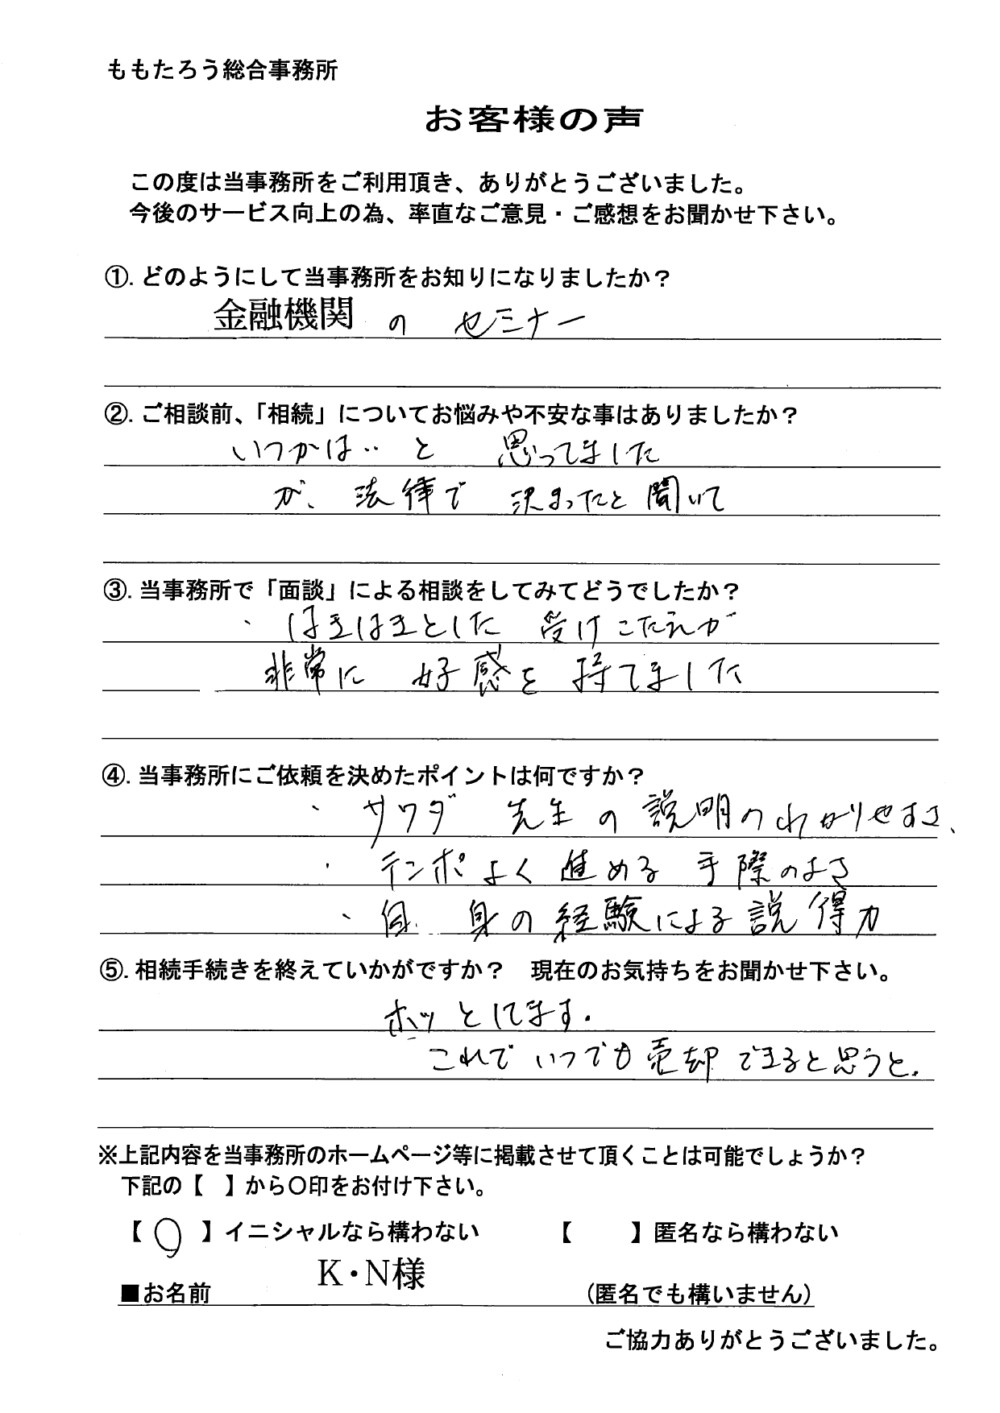 ももたろう総合事務所
お客様の声
この度は当事務所をご利用頂き、ありがとうございました。
今後のサービス向上の為、率直なご意見・ご感想をお聞かせ下さい。
①. どのようにして当事務所をお知りになりましたか？
金融機関 の セミナー
②. ご相談前、「相続」についてお悩みや不安な事はありましたか？
いつかは‥と 思ってました
が、法律で 決まったと聞いて
③. 当事務所で「面談」による相談をしてみてどうでしたか？
・はきはきとした 受けこたえが
非常に 好感を 持てました
④. 当事務所にご依頼を決めたポイントは何ですか？
・サワダ 先生の説明のわかりやすさ、
・テンポよく進める手際のよさ
・自身の経験による説得力
⑤. 相続手続きを終えていかがですか？ 現在のお気持ちをお聞かせ下さい。
ホッとしてます.
これでいつでも売却できると思うと.
※上記内容を当事務所のホームページ等に掲載させて頂くことは可能でしょうか？
下記の【 】から〇印をお付け下さい。
【 〇 】イニシャルなら構わない 【 】匿名なら構わない
■お名前 K・N様 (匿名でも構いません)
ご協力ありがとうございました。